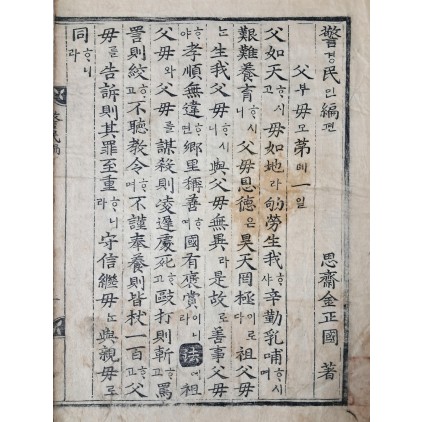 警경民민編편 思齋金正國 著
父부母모第뎨一일
父如天ᄒᆞ고母如地라劬勞生我ᄒᆞ샤辛勤乳哺ᄒᆞ시며
艱難養育ᄒᆞ시니父母恩德은昊天罔極이로다祖父母
ᄂᆞᆫ生我父母ᄒᆞ시니與父母無異라是故로善事父母
ᄒᆞ야孝順無違면鄕里稱善ᄒᆞ며國有褒賞이니라法에祖
父母와父母를謀殺則凌遲處死ᄒᆞ고歐打則斬ᄒᆞ고罵
詈則絞ᄒᆞ고不聽敎令ᄒᆞ며不謹奉養則皆杖一百ᄒᆞ고父
母를告訴則其罪至重ᄒᆞ니라守信繼母ᄂᆞᆫ與親母로
同ᄒᆞ니라
警民編